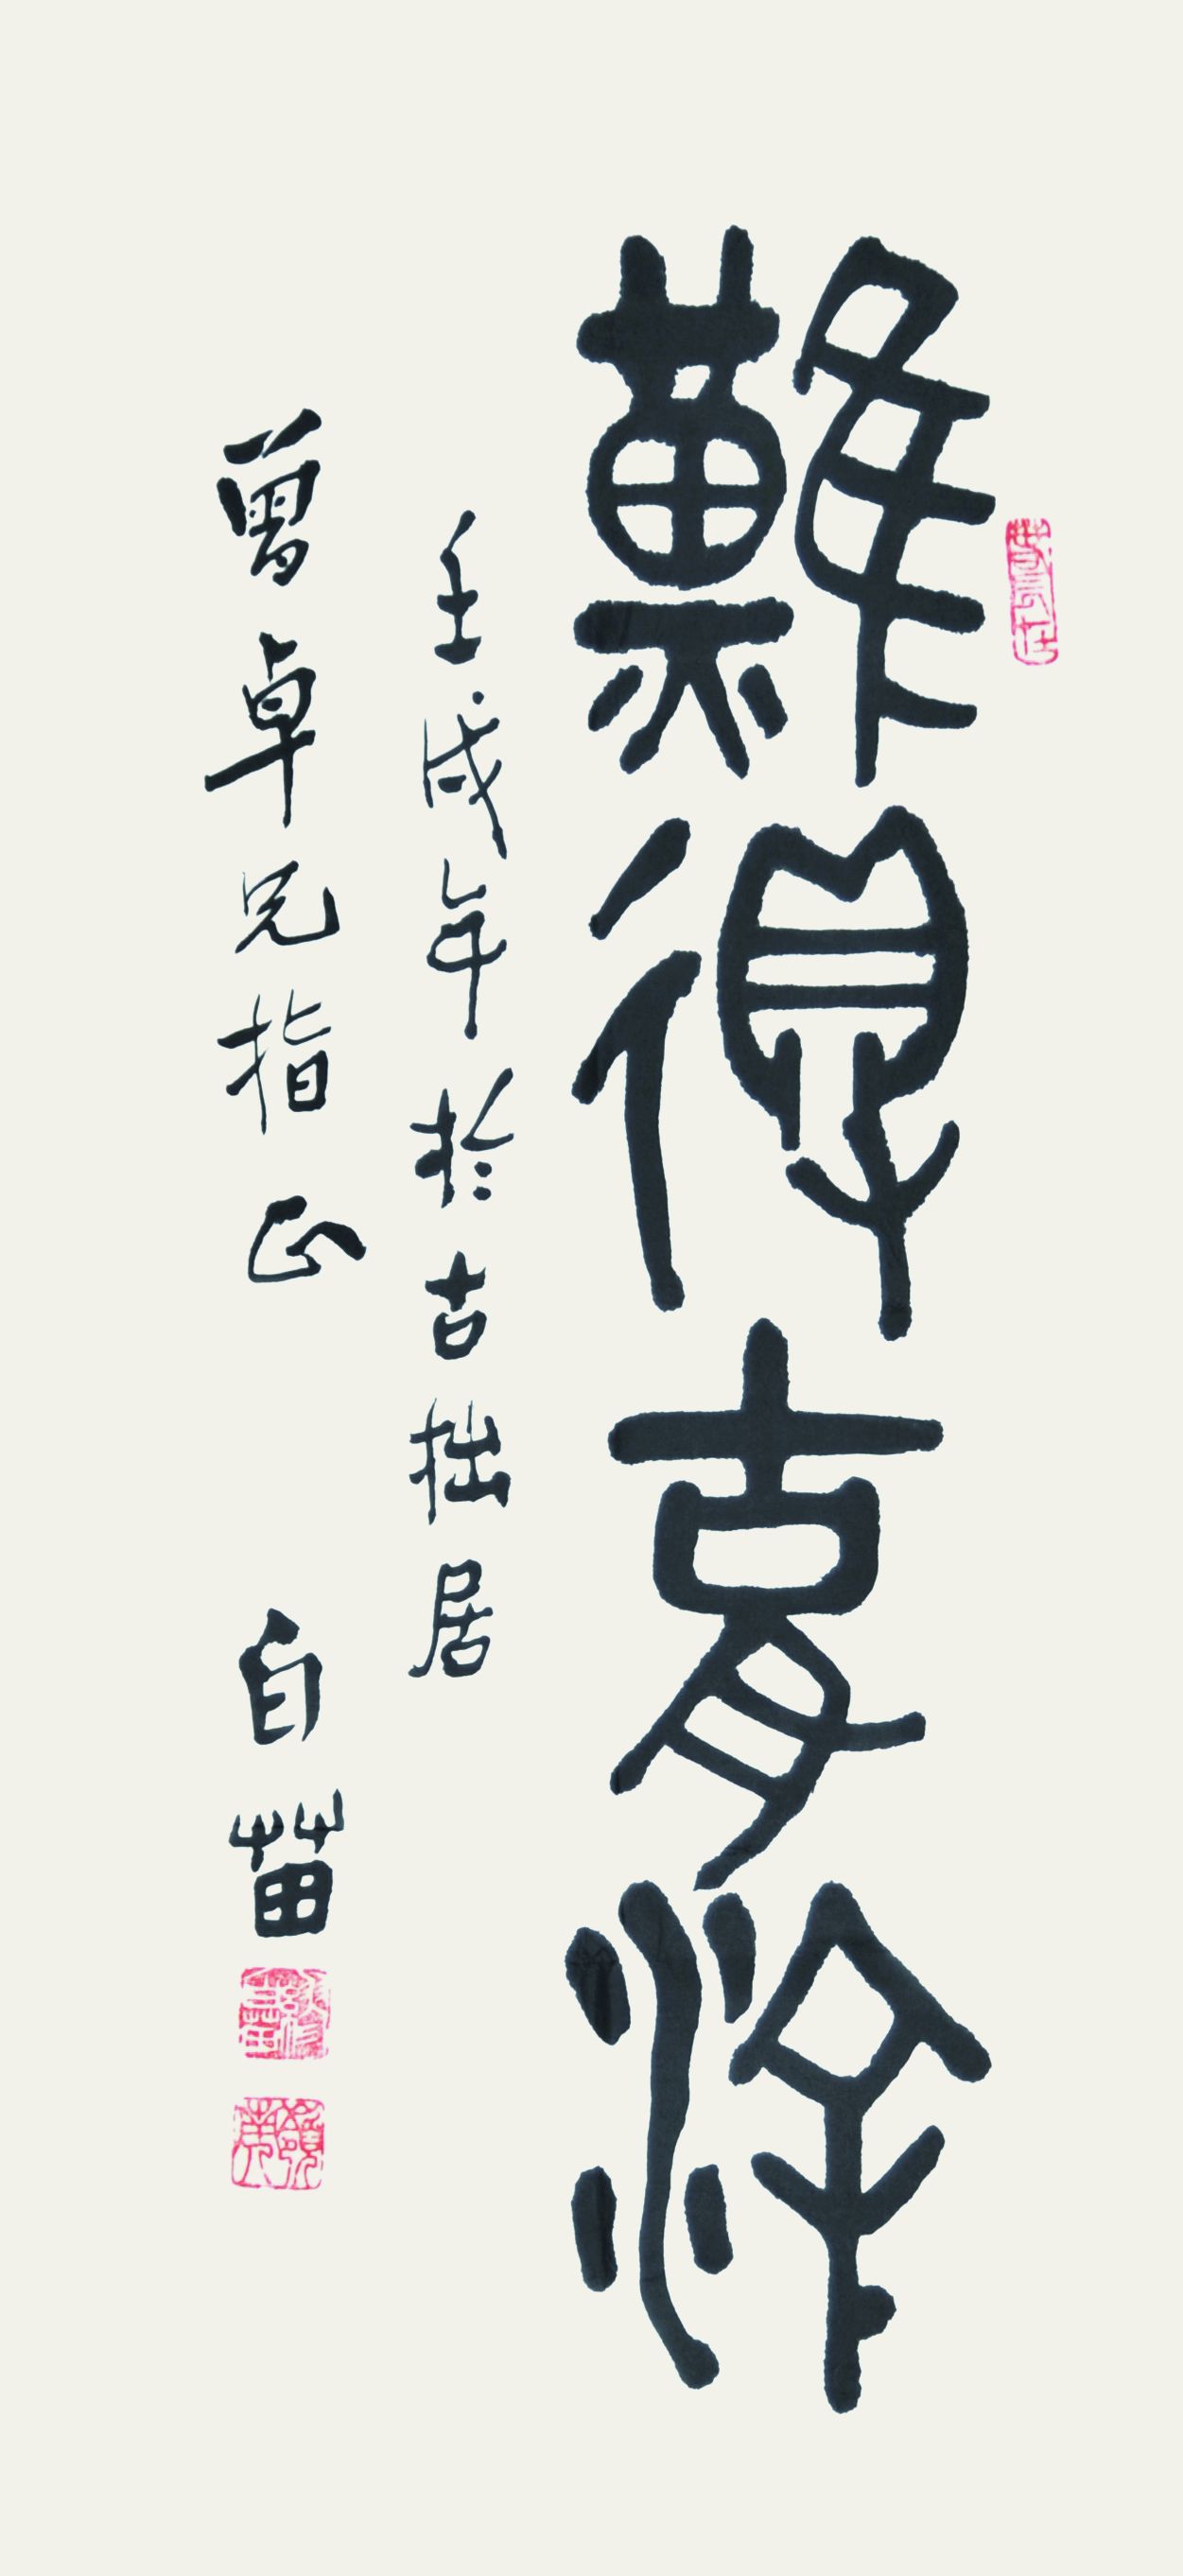 難得胡涂
壬戌年於古拙居
曾卓兄指正 白苗